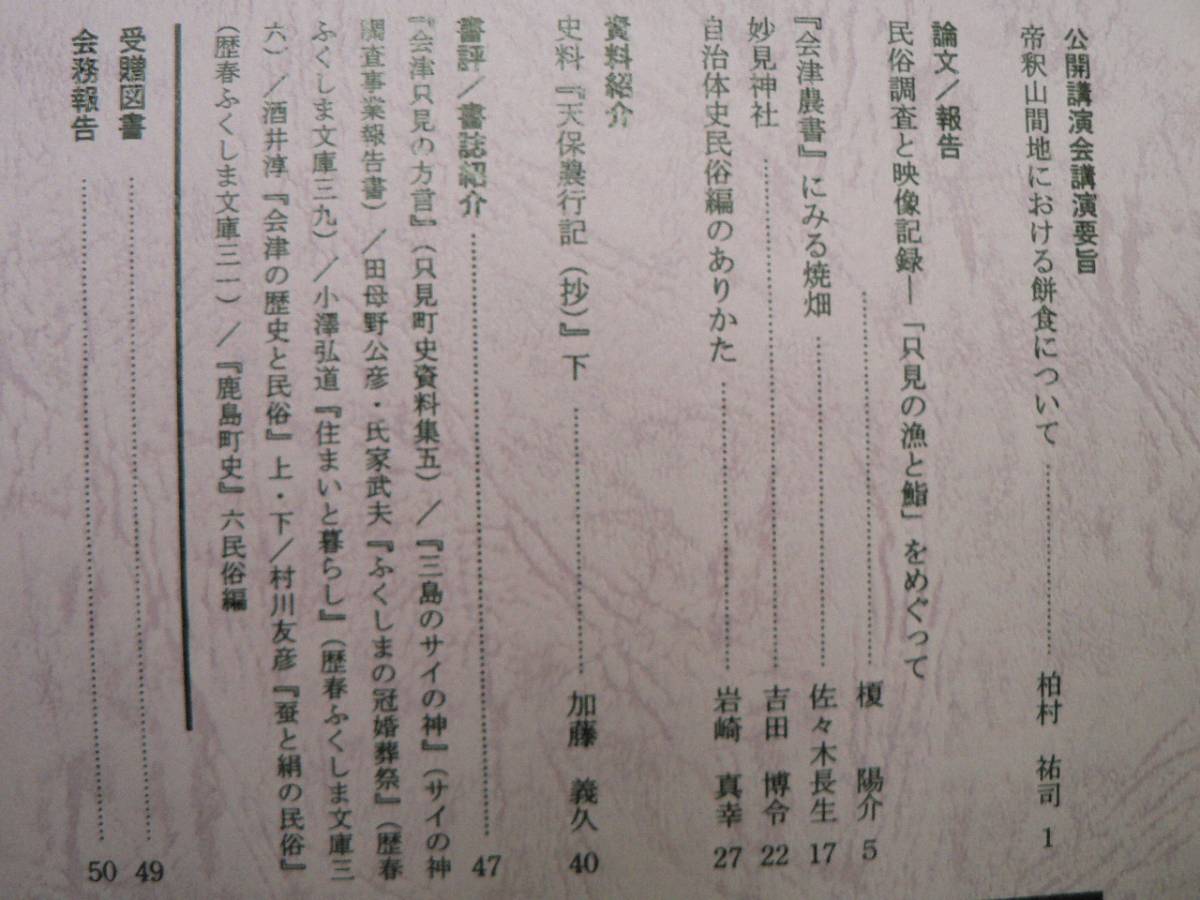 公開講演会講演要旨
帝釈山間地における餅食について………柏村 祐司 1
論文／報告
民俗調査と映像記録―「只見の漁と鮨」をめぐって
………榎 陽介 5
『会津農書』にみる焼畑………佐々木長生 17
妙見神社………吉田 博令 22
自治体史民俗編のありかた………岩崎 真幸 27
資料紹介
史料『天保農行記（抄）』下………加藤 義久 40
書評／書誌紹介………47
『会津只見の方言』（只見町史資料集五）／『三島のサイの神』（サイの神
調査事業報告書）／田母野公彦・氏家武夫『ふくしまの冠婚葬祭』（歴春
ふくしま文庫三九）／小澤弘道『住まいと暮らし』（歴春ふくしま文庫三
六）／酒井淳『会津の歴史と民俗』上・下／村川友彦『蚕と絹の民俗』
（歴春ふくしま文庫三一）／『鹿島町史』六民俗編
受贈図書………49
会務報告………50